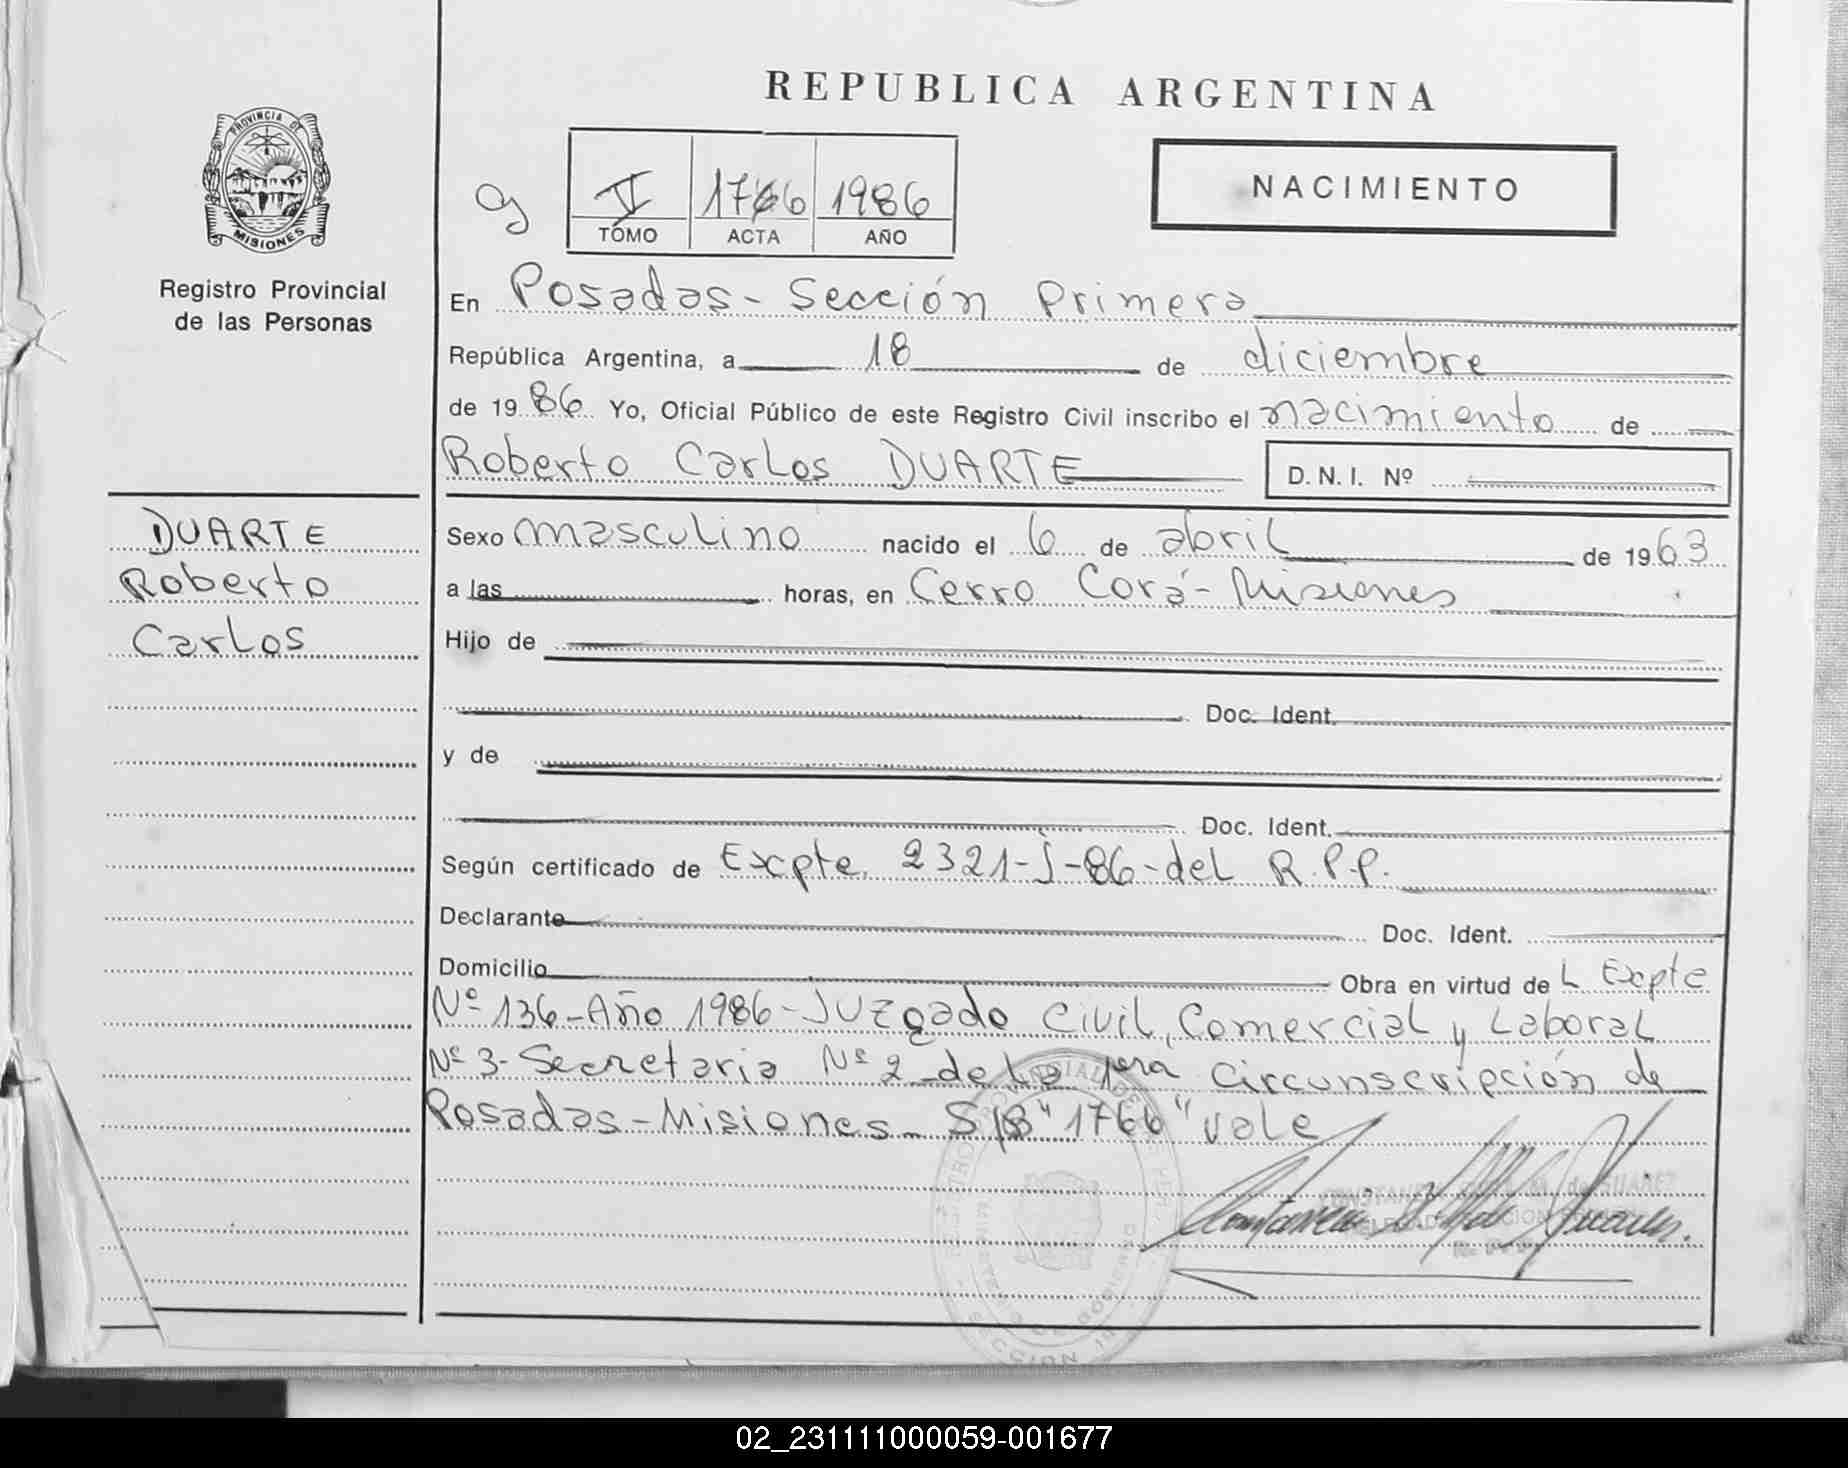 REPUBLICA ARGENTINA
PROVINCIA DE
MISIONES
Registro Provincial
de las Personas
V 1766 1986
TOMO ACTA AÑO
NACIMIENTO
En Posadas - Sección Primera
República Argentina, a 18 de diciembre
de 1986 Yo, Oficial Público de este Registro Civil inscribo el nacimiento de
Roberto Carlos DUARTE D.N.I. Nº
DUARTE
Roberto
Carlos
Sexo masculino nacido el 6 de abril de 1963
a las horas, en Cerro Corá - Misiones
Hijo de
Doc. Ident.
y de
Doc. Ident.
Según certificado de Expte. 2321-J-86-del R.P.P.
Declarante Doc. Ident.
Domicilio Obra en virtud de L Expte
Nº 136-Año 1986-Juzgado Civil, Comercial y Laboral
Nº 3-Secretaria Nº 2-de la 1era Circunscripción de
Posadas-Misiones- S/B "1766" vale
02_231111000059-001677